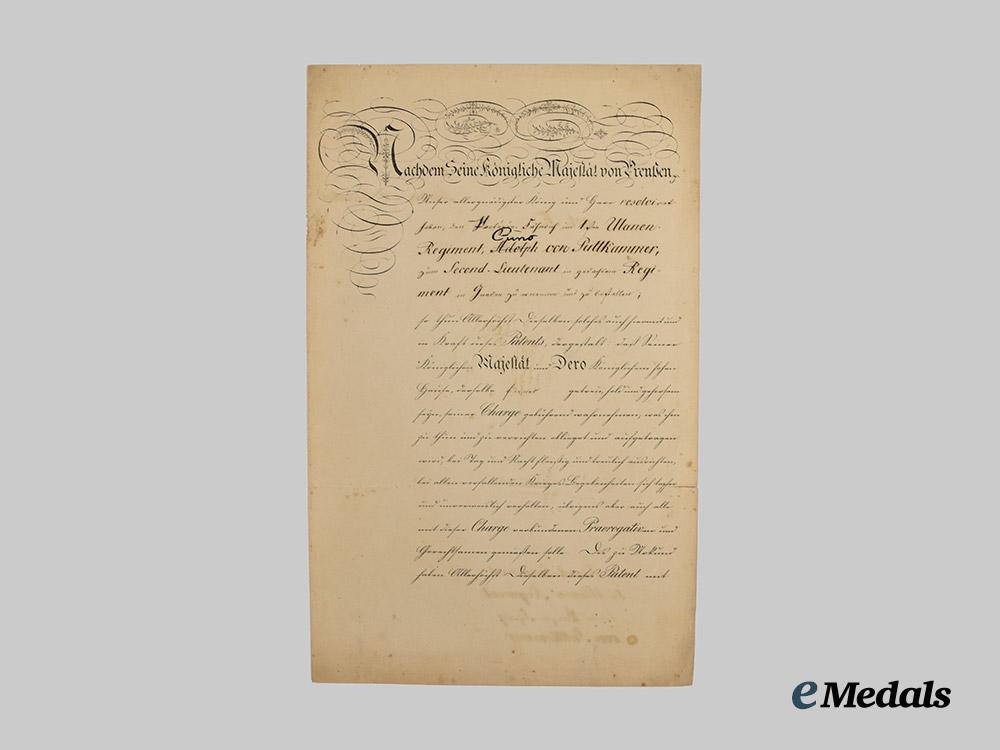 Nachdem Seine Königliche Majestät von Preußen,
Unser allergnädigster König und Herr resolviret
haben, den Portépée-Fähnrich im 1sten Ulanen-
Cuno
Regiment, Adolph von Puttkammer,
zum Second-Lieutenant in gedachtem Regi-
ment in Gnaden zu ernennen und zu bestellen;
so thun Allerhöchst Dieselben solches auch hiermit und
in Kraft dieses Patents, dergestalt daß Seiner
Königlichen Majestät und Dero Königlichem hohen
Hause, derselbe ferner getreu, hold und gehorsam
seyn, seiner Charge gebührend wahrnehmen, was ihm
zu thun und zu verrichten oblieget und aufgetragen
wird, bei Tag und Nacht fleißig und treulich ausrichten,
bei allen vorfallenden Krieges-Begebenheiten sich tapfer
und unverweislich verhalten, übrigens aber auch alle
mit dieser Charge verbundenen Praerogativen und
Gerechtsamen genießen solle. Des zu Urkund
haben Allerhöchst Dieselben dieses Patent mit
eMedals